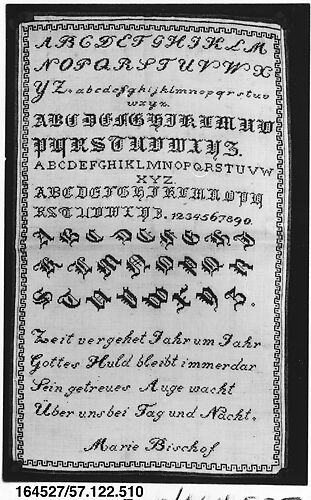 A B C D E F G H I K L M
N O P Q R S T U V W X
Y Z. a b c d e f g h i j k l m n o p q r s t u v
w x y z.
A B C D E F G H I K L M N O
P Q R S T U V W X Y Z.
A B C D E F G H I K L M N O P Q R S T U V W
X Y Z.
A B C D E F G H I K L M N O P Q
R S T U V W X Y Z. 1 2 3 4 5 6 7 8 9 0.
A B C D E F G H I
K L M N O P Q R
S T U V W X Y Z.
Zeit vergehet Jahr um Jahr
Gottes Huld bleibt immerdar
Sein getreues Auge wacht
Über uns bei Tag und Nacht.
Marie Bischof
164527/57.122.510